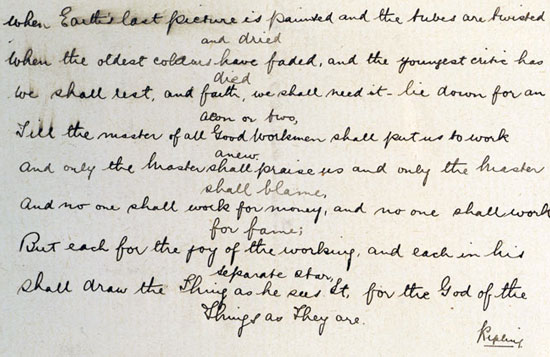 When Earth's last picture is painted and the tubes are twisted
and dried
When the oldest colours have faded, and the youngest critic has
died
We shall rest, and faith, we shall need it - lie down for an
aeon or two,
Till the master of all Good Workmen shall put us to work
anew.
And only the Master shall praise us and only the Master
shall blame,
And no one shall work for money, and no one shall work
for fame;
But each for the joy of the working, and each in his
separate star,
shall draw the Thing as he sees It, for the God of the
Things as They are.
Kipling